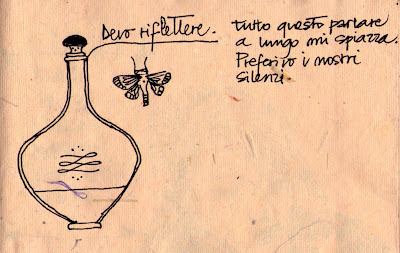 Devo riflettere.
tutto questo parlare
a lungo mi spiazza.
Preferivo i nostri
silenzi.